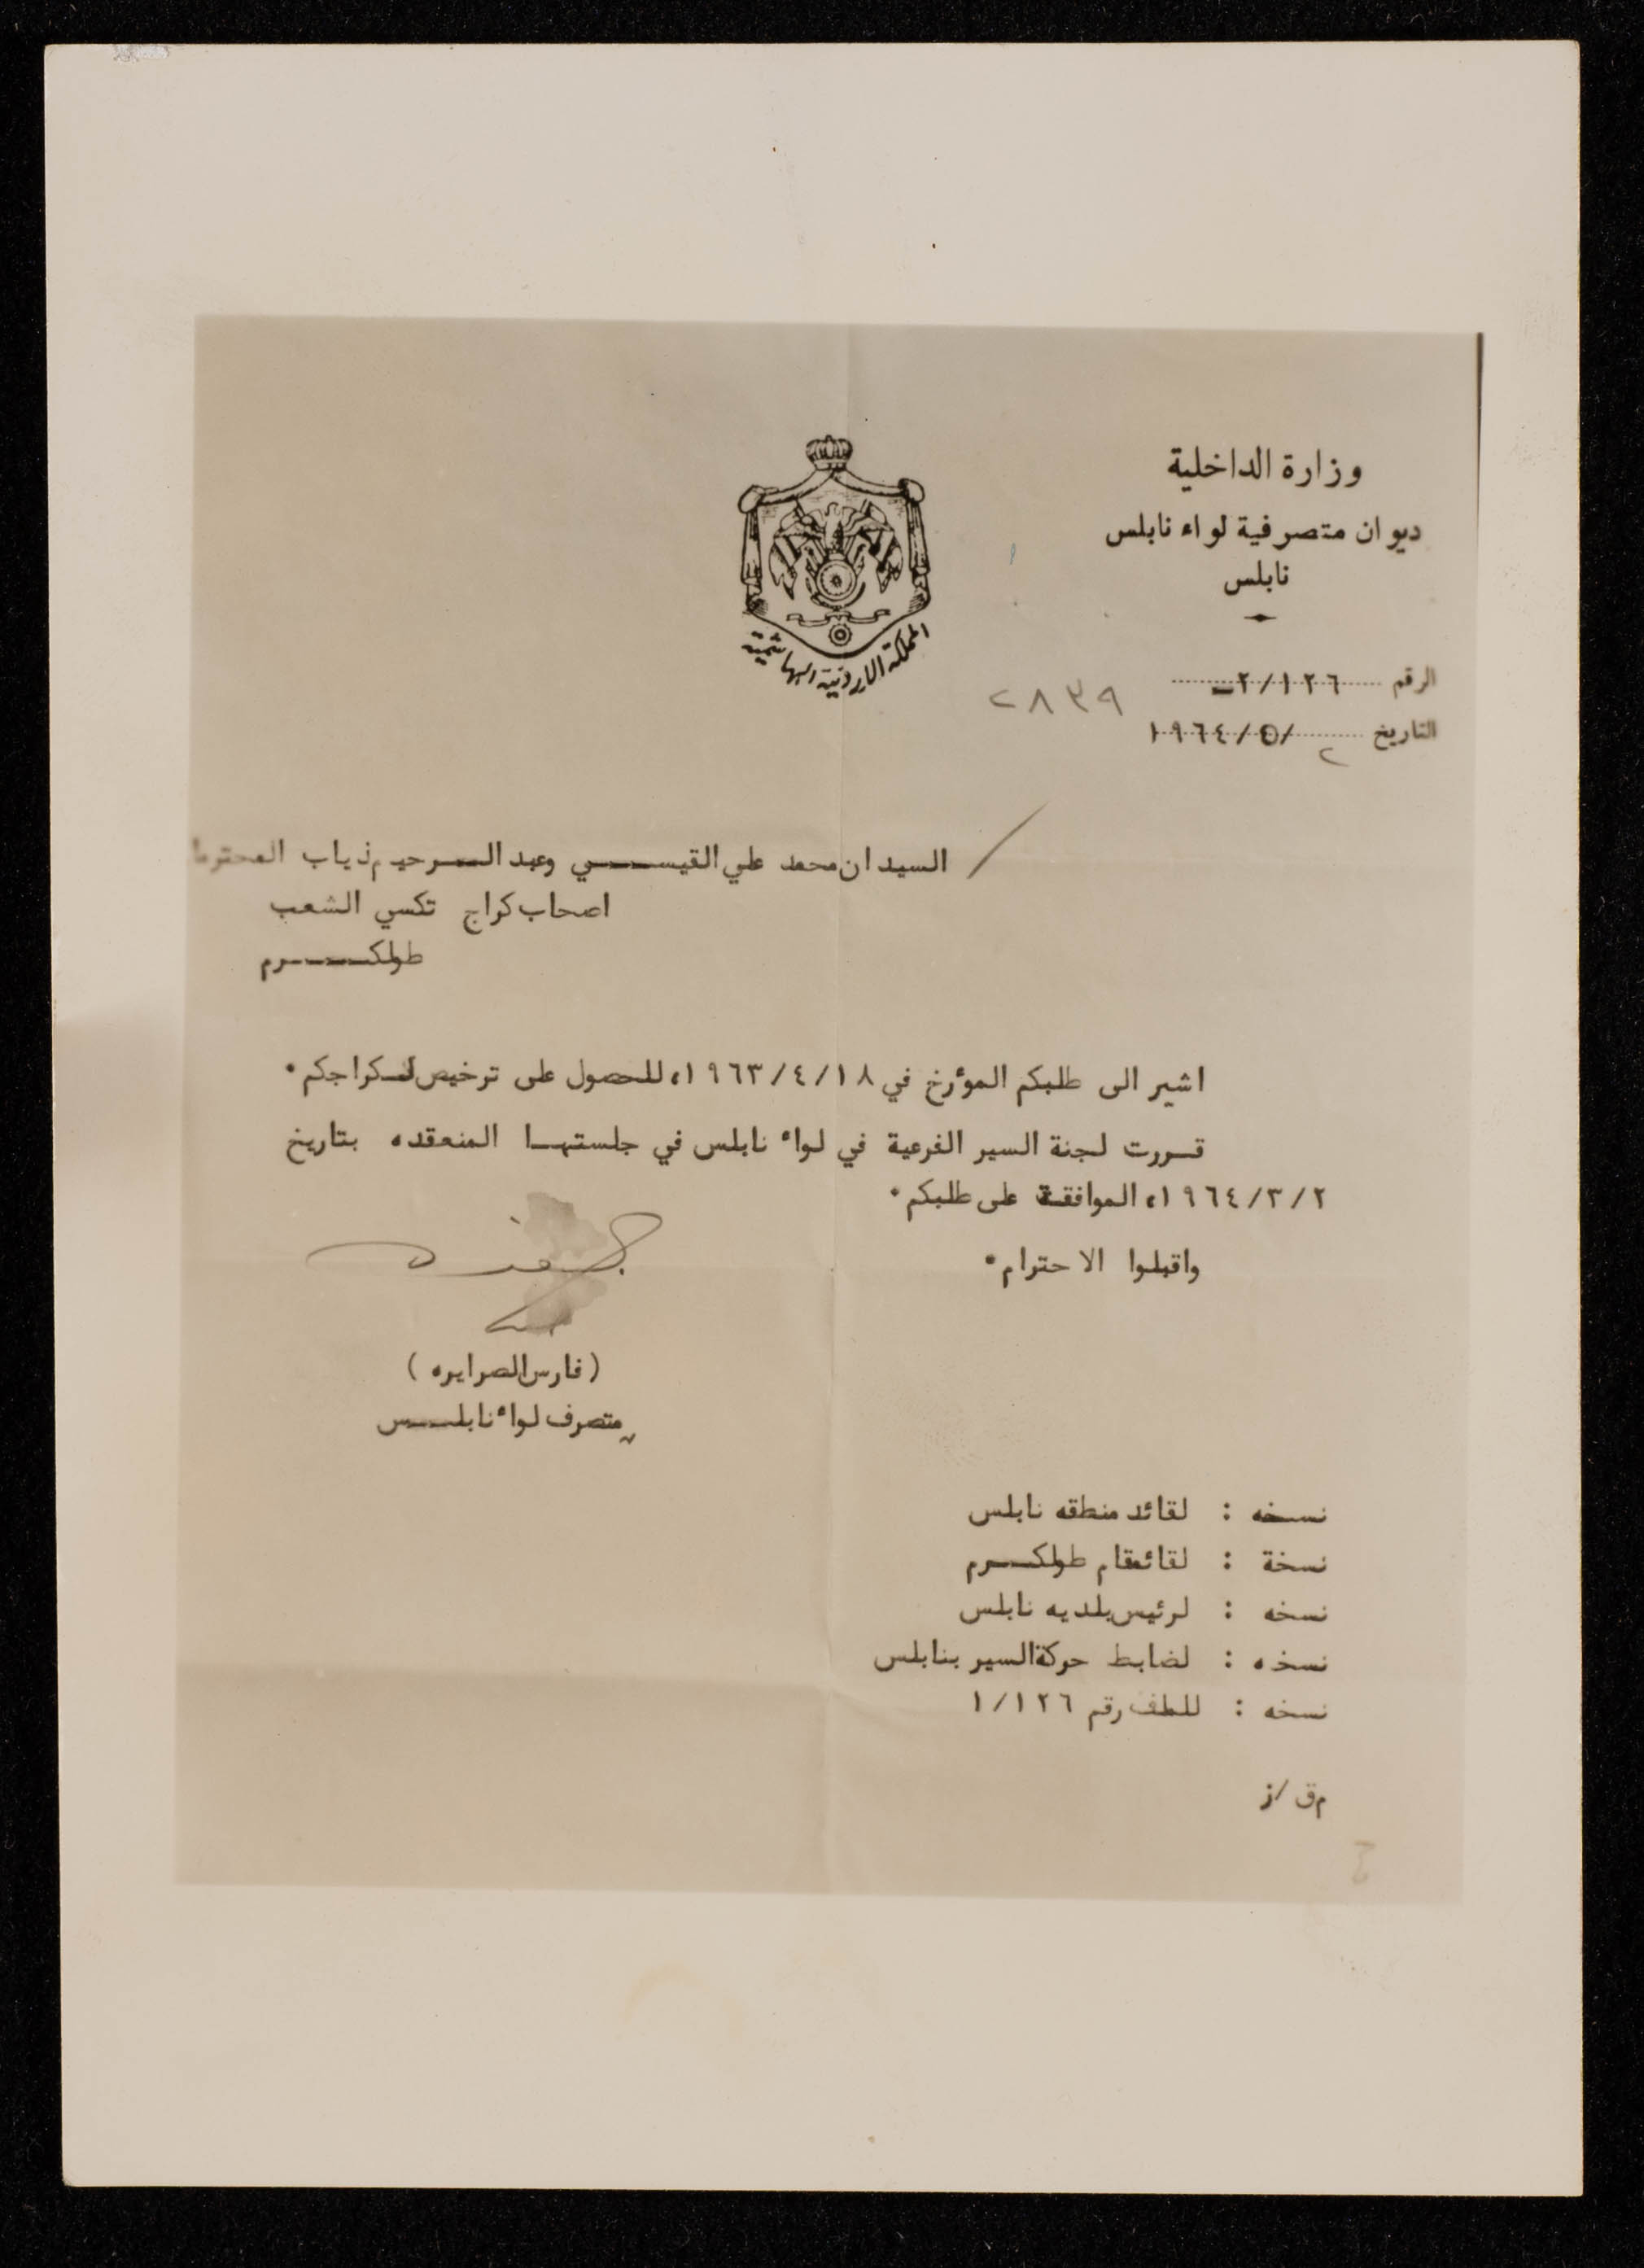 وزارة الداخلية
ديوان متصرفية لواء نابلس
نابلس
المملكة الاردنية الهاشمية
الرقم ٢/١٢٦ـ
٢٨٣٩
التاريخ ٢/٥/١٩٦٤
السيدان محمد علي القيســـي وعبد الـــرحيم ذياب المحترما
اصحاب كراج تكسي الشعب
طولكـــرم
اشير الى طلبكم المؤرخ في ١٩٦٣/٤/١٨، للحصول على ترخيص لكراجكم.
قـررت لجنة السير الفرعية في لواء نابلس في جلستهـا المنعقده بتاريخ
١٩٦٤/٣/٢، الموافقة على طلبكم.
واقبلوا الاحترام.
(فارس الصرايره)
متصرف لواء نابلـــس
نسخه : لقائد منطقه نابلس
نسخة : لقائمقام طولكـــرم
نسخه : لرئيس بلديه نابلس
نسخه : لضابط حركة السير بنابلس
نسخه : للملف رقم ١/١٢٦
م ق/ز